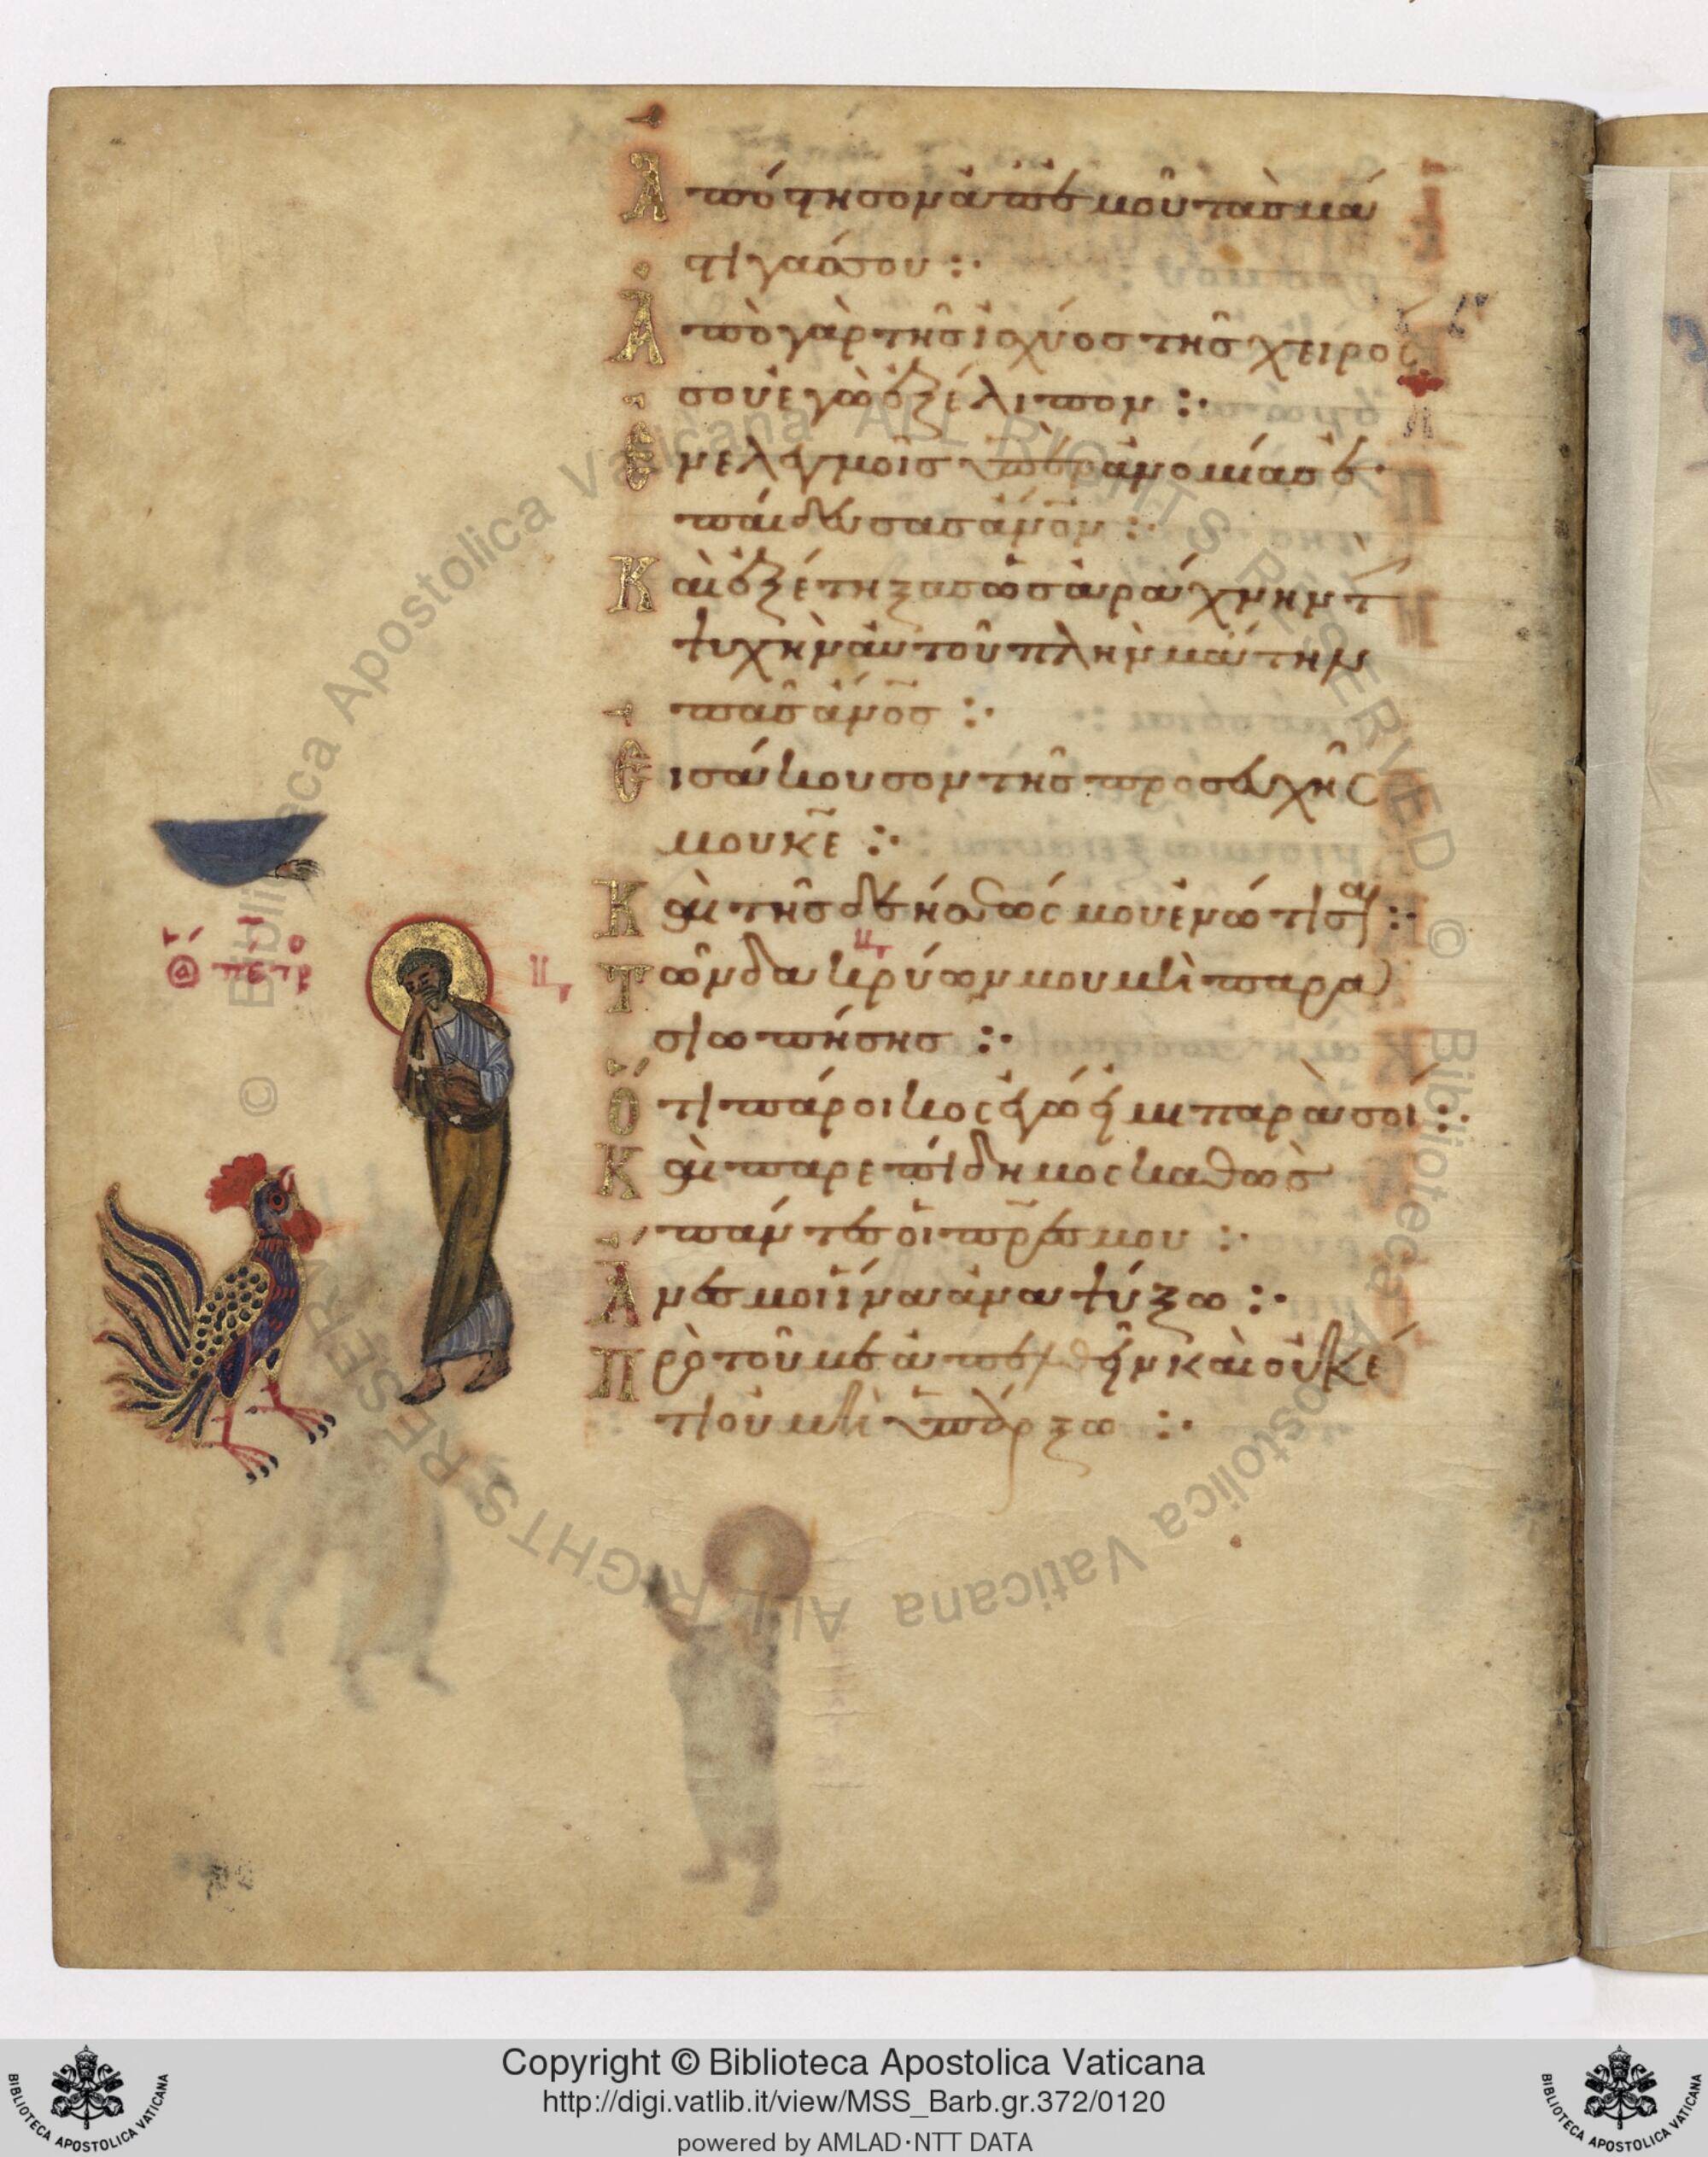 Ἀπόστησον ἀπ' ἐμοῦ τὰς μά
στιγάς σου :·
Ἀπὸ γὰρ τῆς ἰσχύος τῆς χειρός
σου ἐγὼ ἐξέλιπον :·
Ἐν ἐλεγμοῖς ὑπὲρ ἀνομίας ἐ
παίδευσας ἄν̅ο̅ν :·
Καὶ ἐξέτηξας ὡς ἀράχνην τ
ψυχὴν αὐτοῦ πλὴν μάτην
πᾶς ἄν̅ο̅ς :·
Εἰσάκουσον τῆς προσευχῆς
μου κ̅ε̅ :·
Καὶ τῆς δεήσεώς μου ἐνώτισαι :·
Τῶν δακρύων μου μὴ παρα
σιωπήσῃς :·
ὁ πέτρ
Ὅτι πάροικος ἐγώ εἰμι παρὰ σοὶ :·
Καὶ παρεπίδημος καθὼς
πάντες οἱ π̅ρ̅ες μου :·
Ἄνες μοι ἵνα ἀναψύξω :·
Πρὸ τοῦ με ἀπελθεῖν καὶ οὐκέ
τι οὐ μὴ ὑπάρξω :·
© Biblioteca Apostolica Vaticana ALL RIGHTS RESERVED © Biblioteca Apostolica Vaticana ALL RIGHTS RESERVED
Copyright © Biblioteca Apostolica Vaticana
http://digi.vatlib.it/view/MSS_Barb.gr.372/0120
powered by AMLAD·NTT DATA
BIBLIOTECA APOSTOLICA VATICANA
BIBLIOTECA APOSTOLICA VATICANA